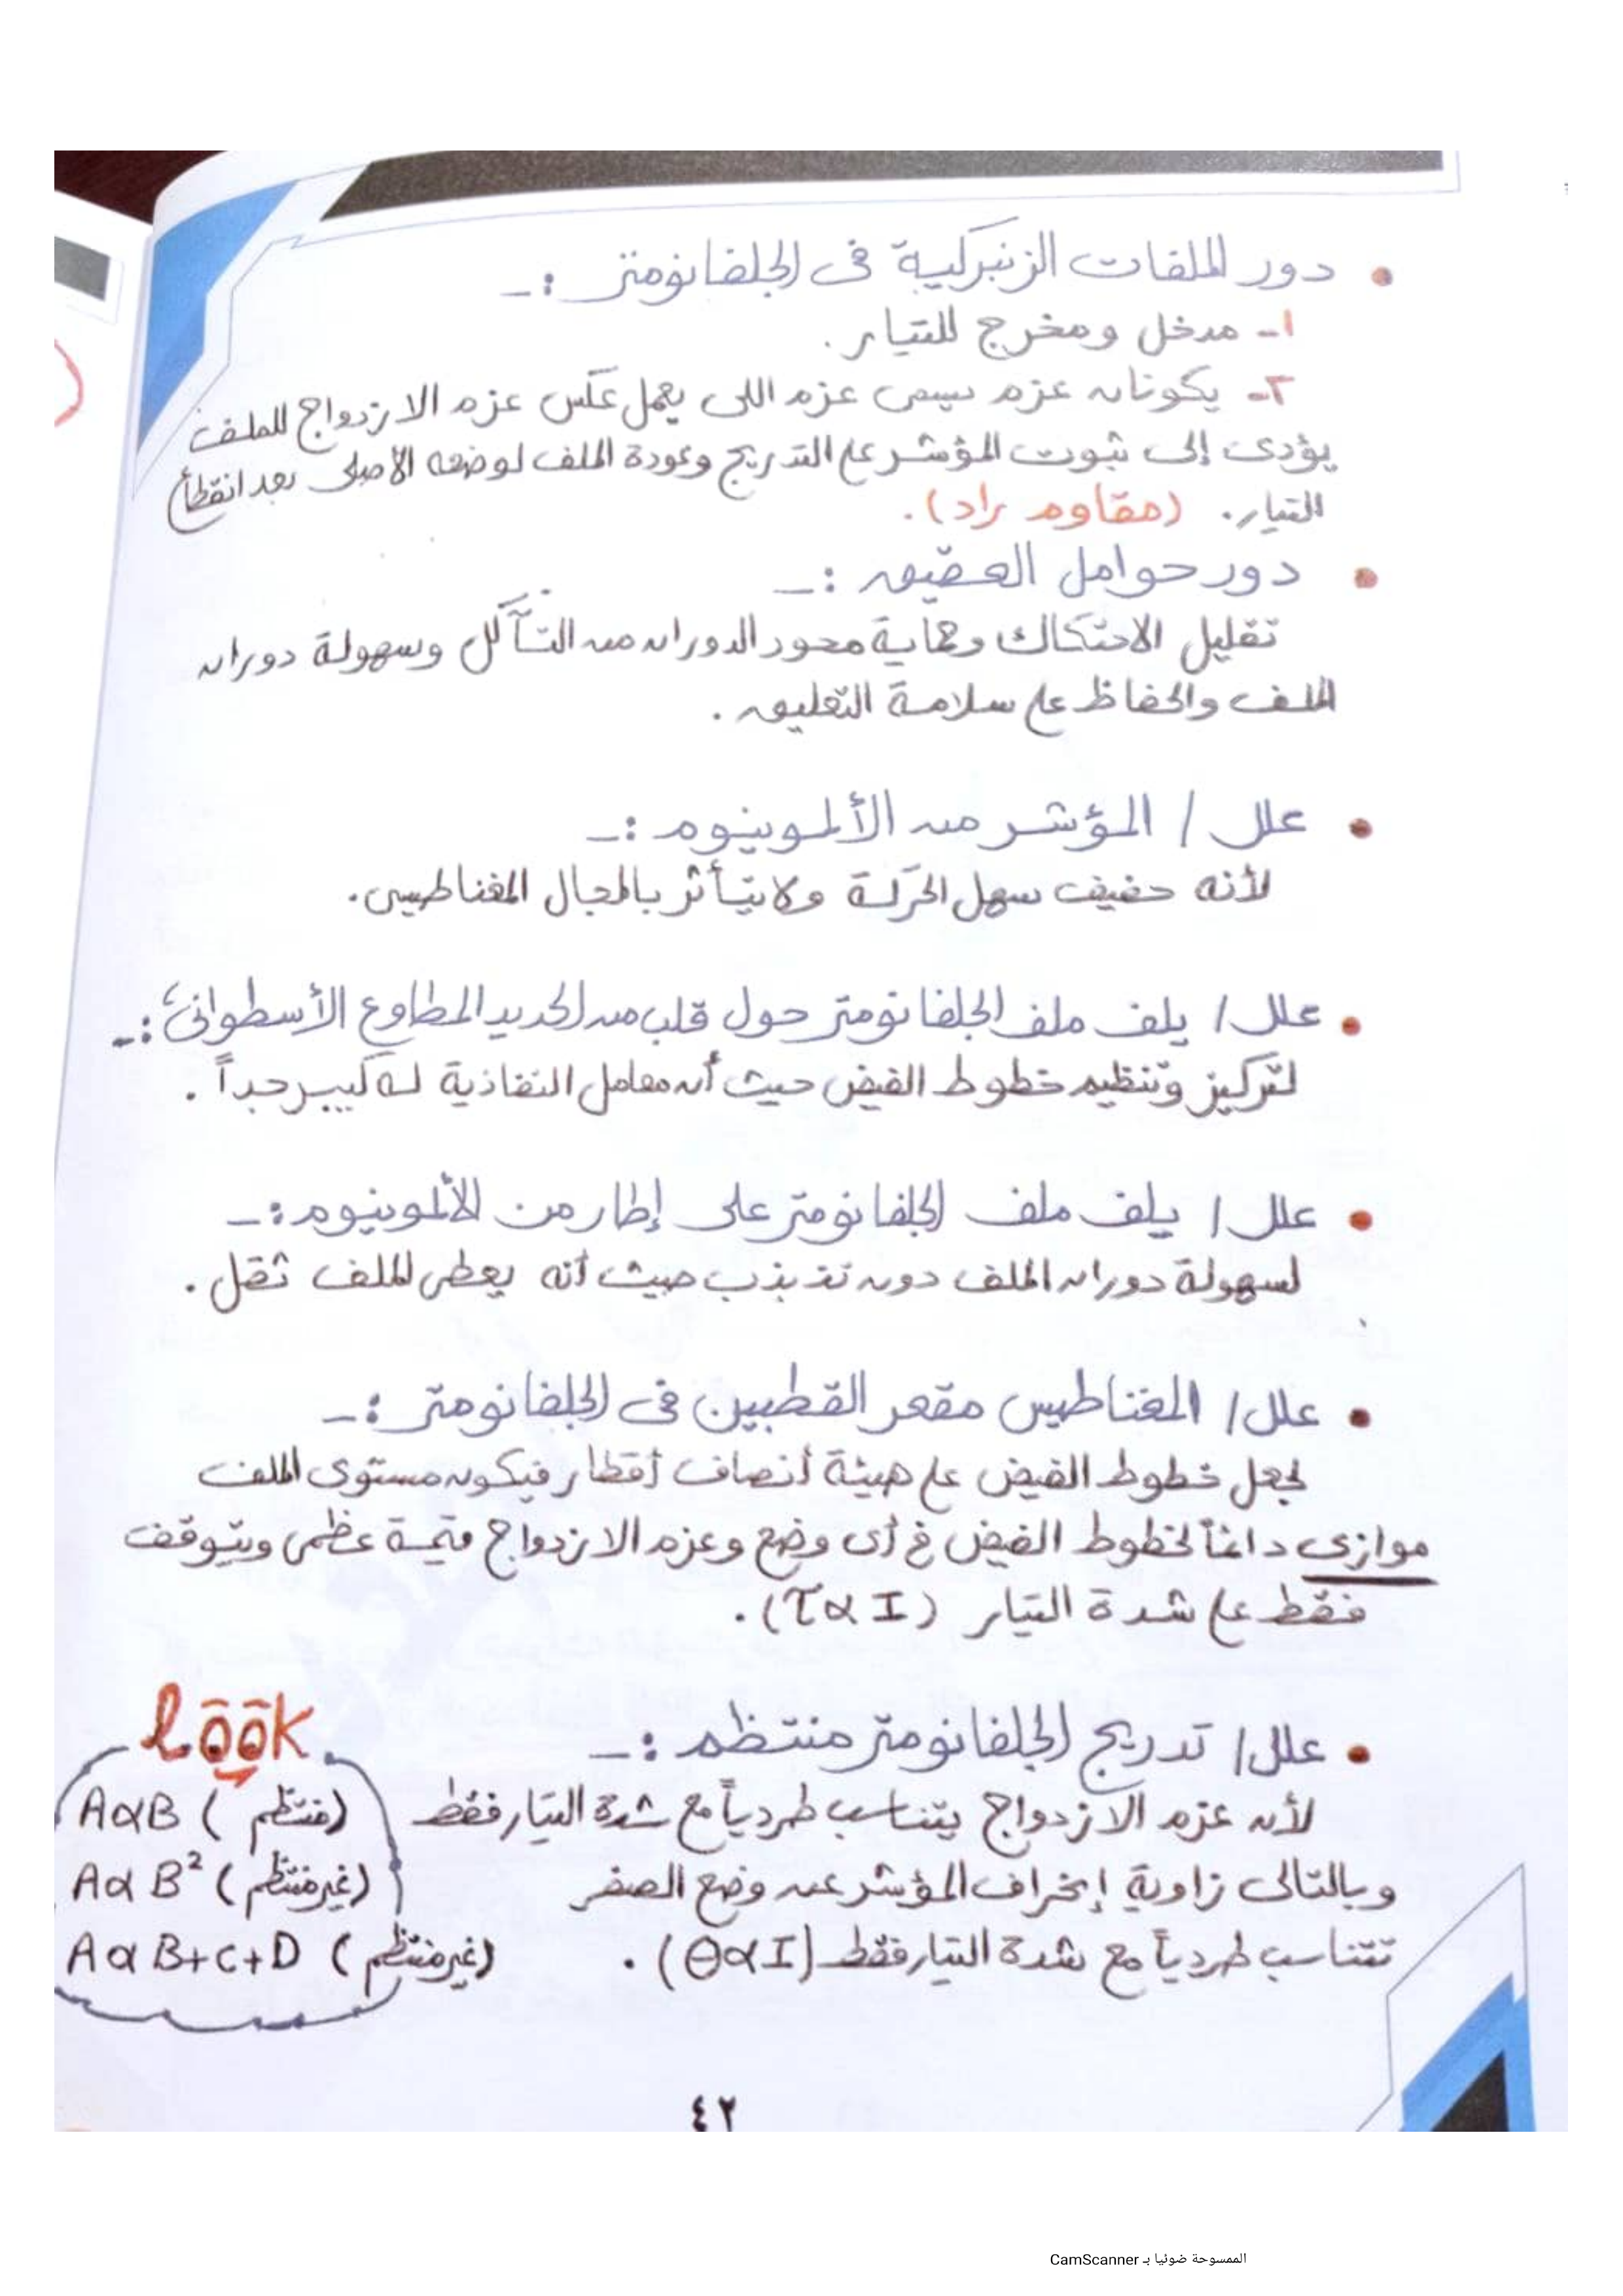 • دور الملفات الزنبركية فى الجلفانومتر :ـ
١ـ مدخل ومخرج للتيار .
٢ـ يكونان عزم يسمى عزم اللى يعمل عكس عزم الازدواج للملف
يؤدى إلى ثبوت المؤشر على التدريج وعودة الملف لوضعه الأصلى بعد انقطاع
التيار . (مقاوم راد) .
• دور حوامل العقيق :ـ
تقليل الاحتكاك وحماية محور الدوران من التآكل وسهولة دوران
الملف والحفاظ على سلامة التعليق .
• علل / المؤشر من الألمونيوم :ـ
لأنه خفيف سهل الحركة ولا يتأثر بالمجال المغناطيسى .
• علل / يلف ملف الجلفانومتر حول قلب من الحديد المطاوع الأسطوانى :ـ
لتركيز وتنظيم خطوط الفيض حيث أن معامل النفاذية له كبير جداً .
• علل / يلف ملف الجلفانومتر على إطار من الألمونيوم :ـ
لسهولة دوران الملف دون تذبذب حيث أنه يعطى للملف ثقل .
• علل / المغناطيس مقعر القطبين فى الجلفانومتر :ـ
لجعل خطوط الفيض على هيئة أنصاف أقطار فيكون مستوى الملف
موازى دائماً لخطوط الفيض فى أى وضع وعزم الازدواج قيمة عظمى ويتوقف
فقط على شدة التيار (τ α I) .
• علل / تدريج الجلفانومتر منتظم :ـ
لأن عزم الازدواج يتناسب طردياً مع شدة التيار فقط
وبالتالى زاوية إنحراف المؤشر عن وضع الصفر
تتناسب طردياً مع شدة التيار فقط (θ α I) .
look
A α B (منتظم)
A α B² (غير منتظم)
A α B+C+D (غير منتظم)
٤٢
الممسوحة ضوئيا بـ CamScanner